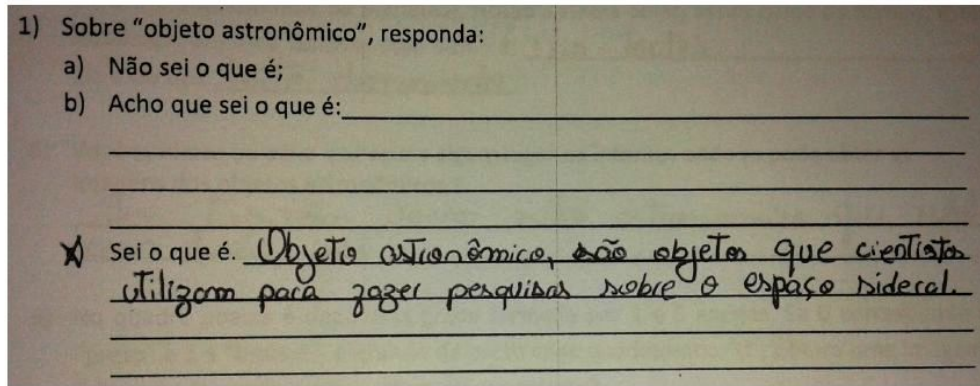 1) Sobre “objeto astronômico”, responda:
a) Não sei o que é;
b) Acho que sei o que é:
Sei o que é. Objeto astronômico, são objetos que cientistas
utilizam para fazer pesquisas sobre o espaço sideral.